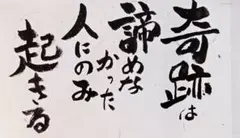 奇跡は
諦めな
かった
人にのみ
起きる